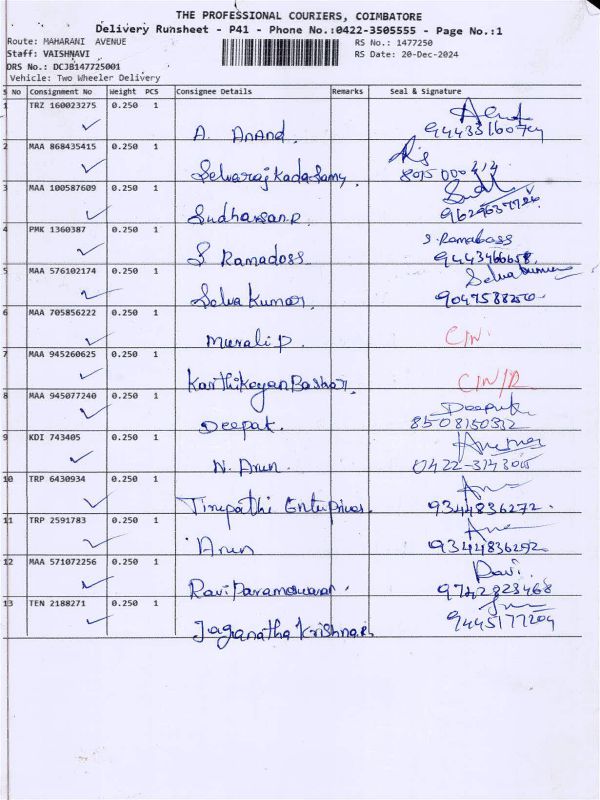 THE PROFESSIONAL COURIERS, COIMBATORE
Delivery Runsheet - P41 - Phone No.:0422-3505555 - Page No.:1
Route: MAHARANI AVENUE RS No.: 1477250
Staff: VAISHNAVI RS Date: 20-Dec-2024
DRS No.: DCJB147725001
Vehicle: Two Wheeler Delivery
S No Consignment No Weight PCS Consignee Details Remarks Seal & Signature
1 TRZ 160023275 0.250 1
A. Anand.
2 MAA 868435415 0.250 1
Selvaraj Kadasamy
3 MAA 100587609 0.250 1
Sudharsan.R
4 PMK 1360387 0.250 1 S. Ramadoss
S Ramadoss 9443466658
5 MAA 576102174 0.250 1 Selvakumar
Selva Kumar 9047588250
6 MAA 705856222 0.250 1
Murali P. C/N.
7 MAA 945260625 0.250 1
Karthikeyan Baskar. C/N/R
8 MAA 945077240 0.250 1 Deepak
Deepak. 8508150332
9 KDI 743405 0.250 1
N. Arun. 0422-
10 TRP 6430934 0.250 1
Tirupathi Enterprises. 9344836272.
11 TRP 2591783 0.250 1
Arun 9344836292
12 MAA 571072256 0.250 1 Ravi.
Ravi Parameswaran. 9742823468
13 TEN 2188271 0.250 1
Jaganatha Krishnan 9445177204